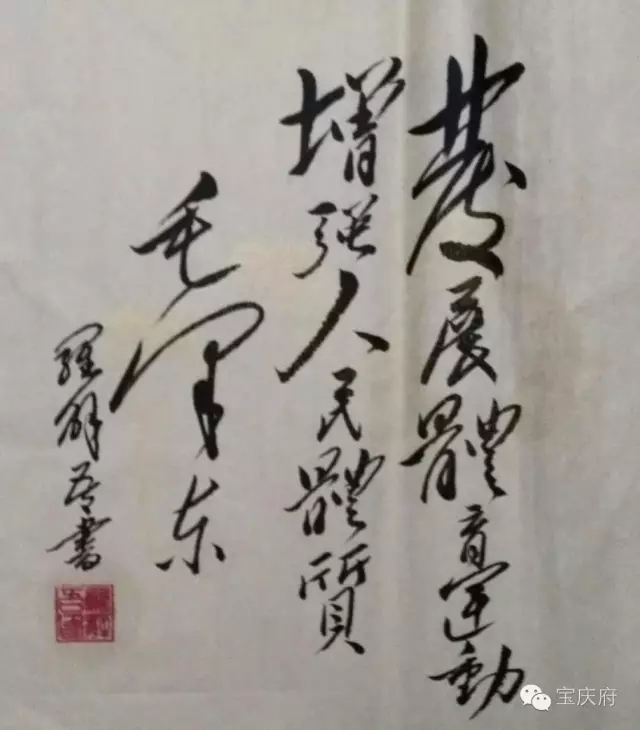 發展體育運動
增强人民體質
毛泽东
羅解吾書
宝庆府